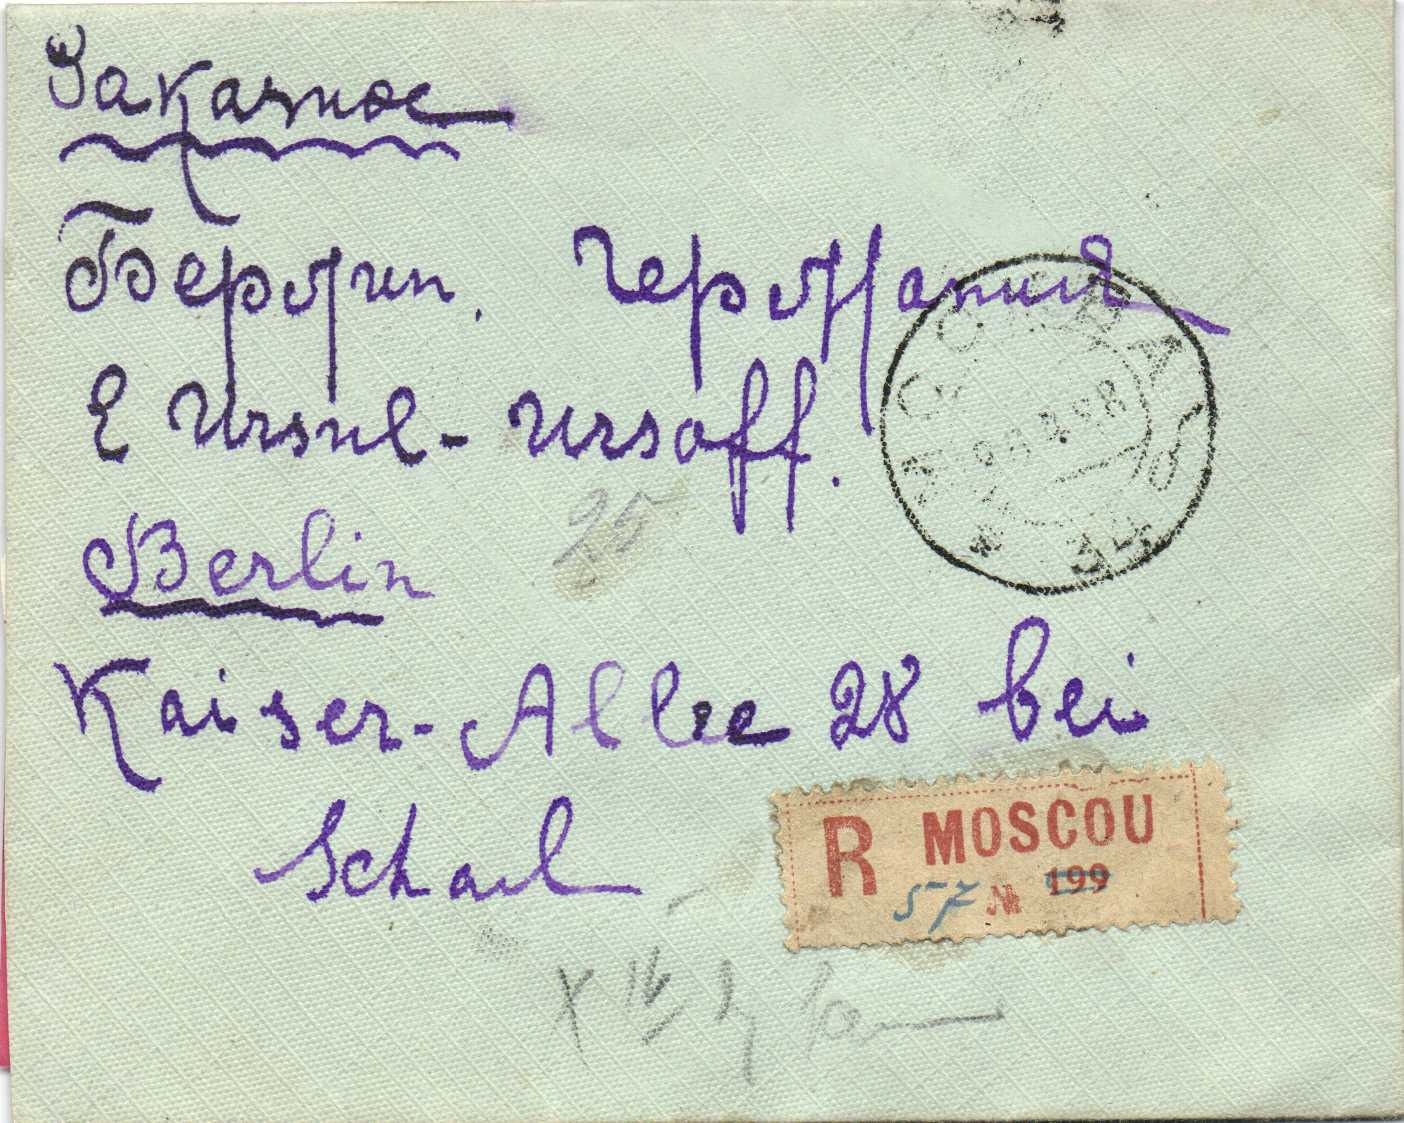 Заказное
Берлин. Германия
E Ursul-Ursoff.
25
Berlin
Kaiser-Allee 28 bei
Schal
МОСКВА
34
R MOSCOU
57 № 199